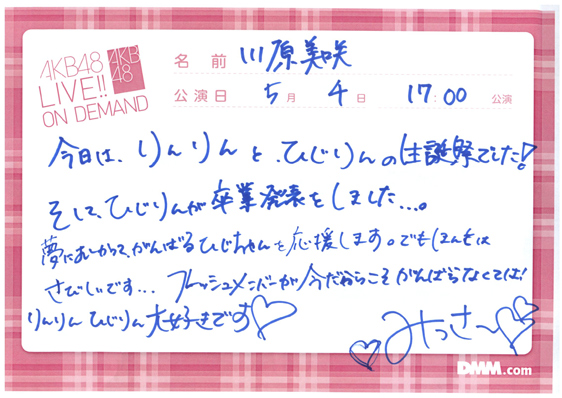 AKB48
LIVE!!
ON DEMAND
AKB
48
名前 川原美咲
公演日 5月 4日 17:00 公演
今日は、りんりんと、ひじりんの生誕祭でした!
そして、ひじりんが卒業発表をしました...。
夢にむかって、がんばるひじちゃんを応援します。でもほんとは
さびしいです... フレッシュメンバーが今だからこそがんばらなくては!
りんりん ひじりん 大好きです♡
みっさ～♡
DMM.com